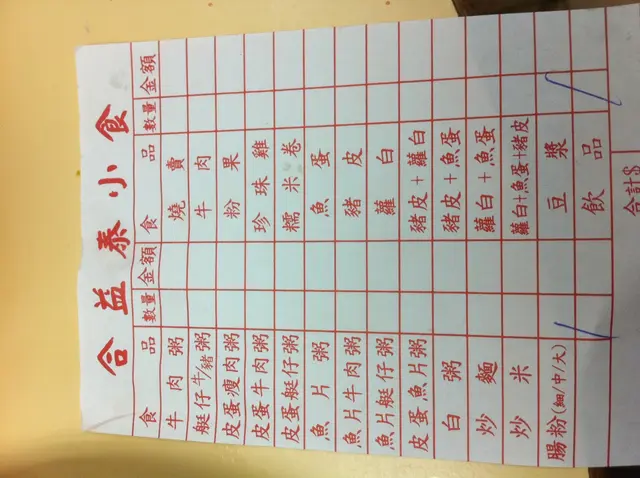 合益泰小食
食品 數量 金額 食品 數量 金額
牛肉粥 燒賣
艇仔牛/豬粥 牛肉
皮蛋瘦肉粥 粉果
皮蛋牛肉粥 珍珠雞
皮蛋艇仔粥 糯米卷
魚片粥 魚蛋
魚片牛肉粥 豬皮
魚片艇仔粥 蘿白
皮蛋魚片粥 豬皮+蘿白
白粥 豬皮+魚蛋
炒麵 蘿白+魚蛋
炒米 蘿白+魚蛋+豬皮
腸粉(細/中/大) 豆漿
飲品
合計$